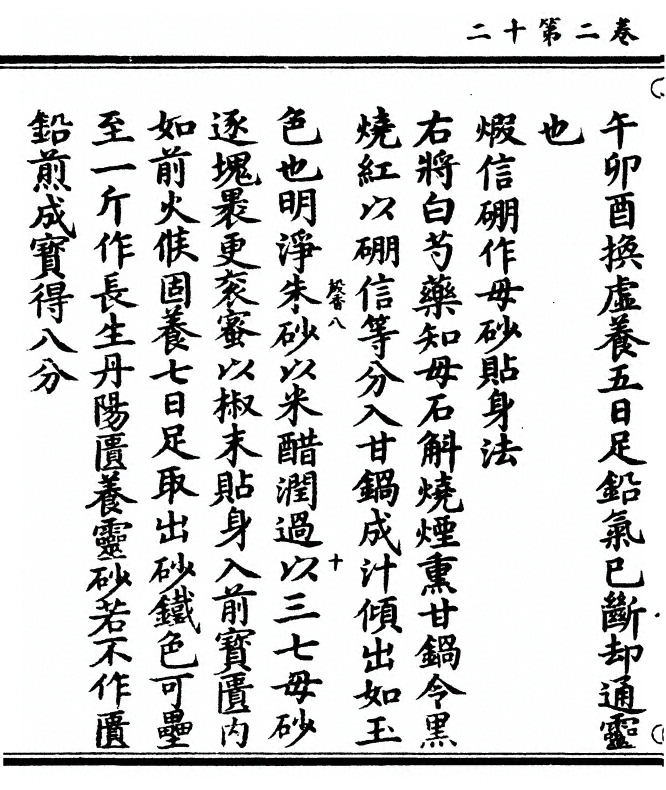 卷二第十二
午卯酉換虛養五日足鉛氣已斷却通靈
也
煆信硼作母砂貼身法
右將白芍藥知母石斛燒煙熏甘鍋令黑
燒紅以硼信等分入甘鍋成汁傾出如玉
殺書八
十
色也明淨朱砂以米醋潤過以三七母砂
逐塊褁更衮蜜以椒末貼身入前寶匱內
如前火候固養七日足取出砂鐵色可壘
至一斤作長生丹陽匱養靈砂若不作匱
鉛煎成寶得八分